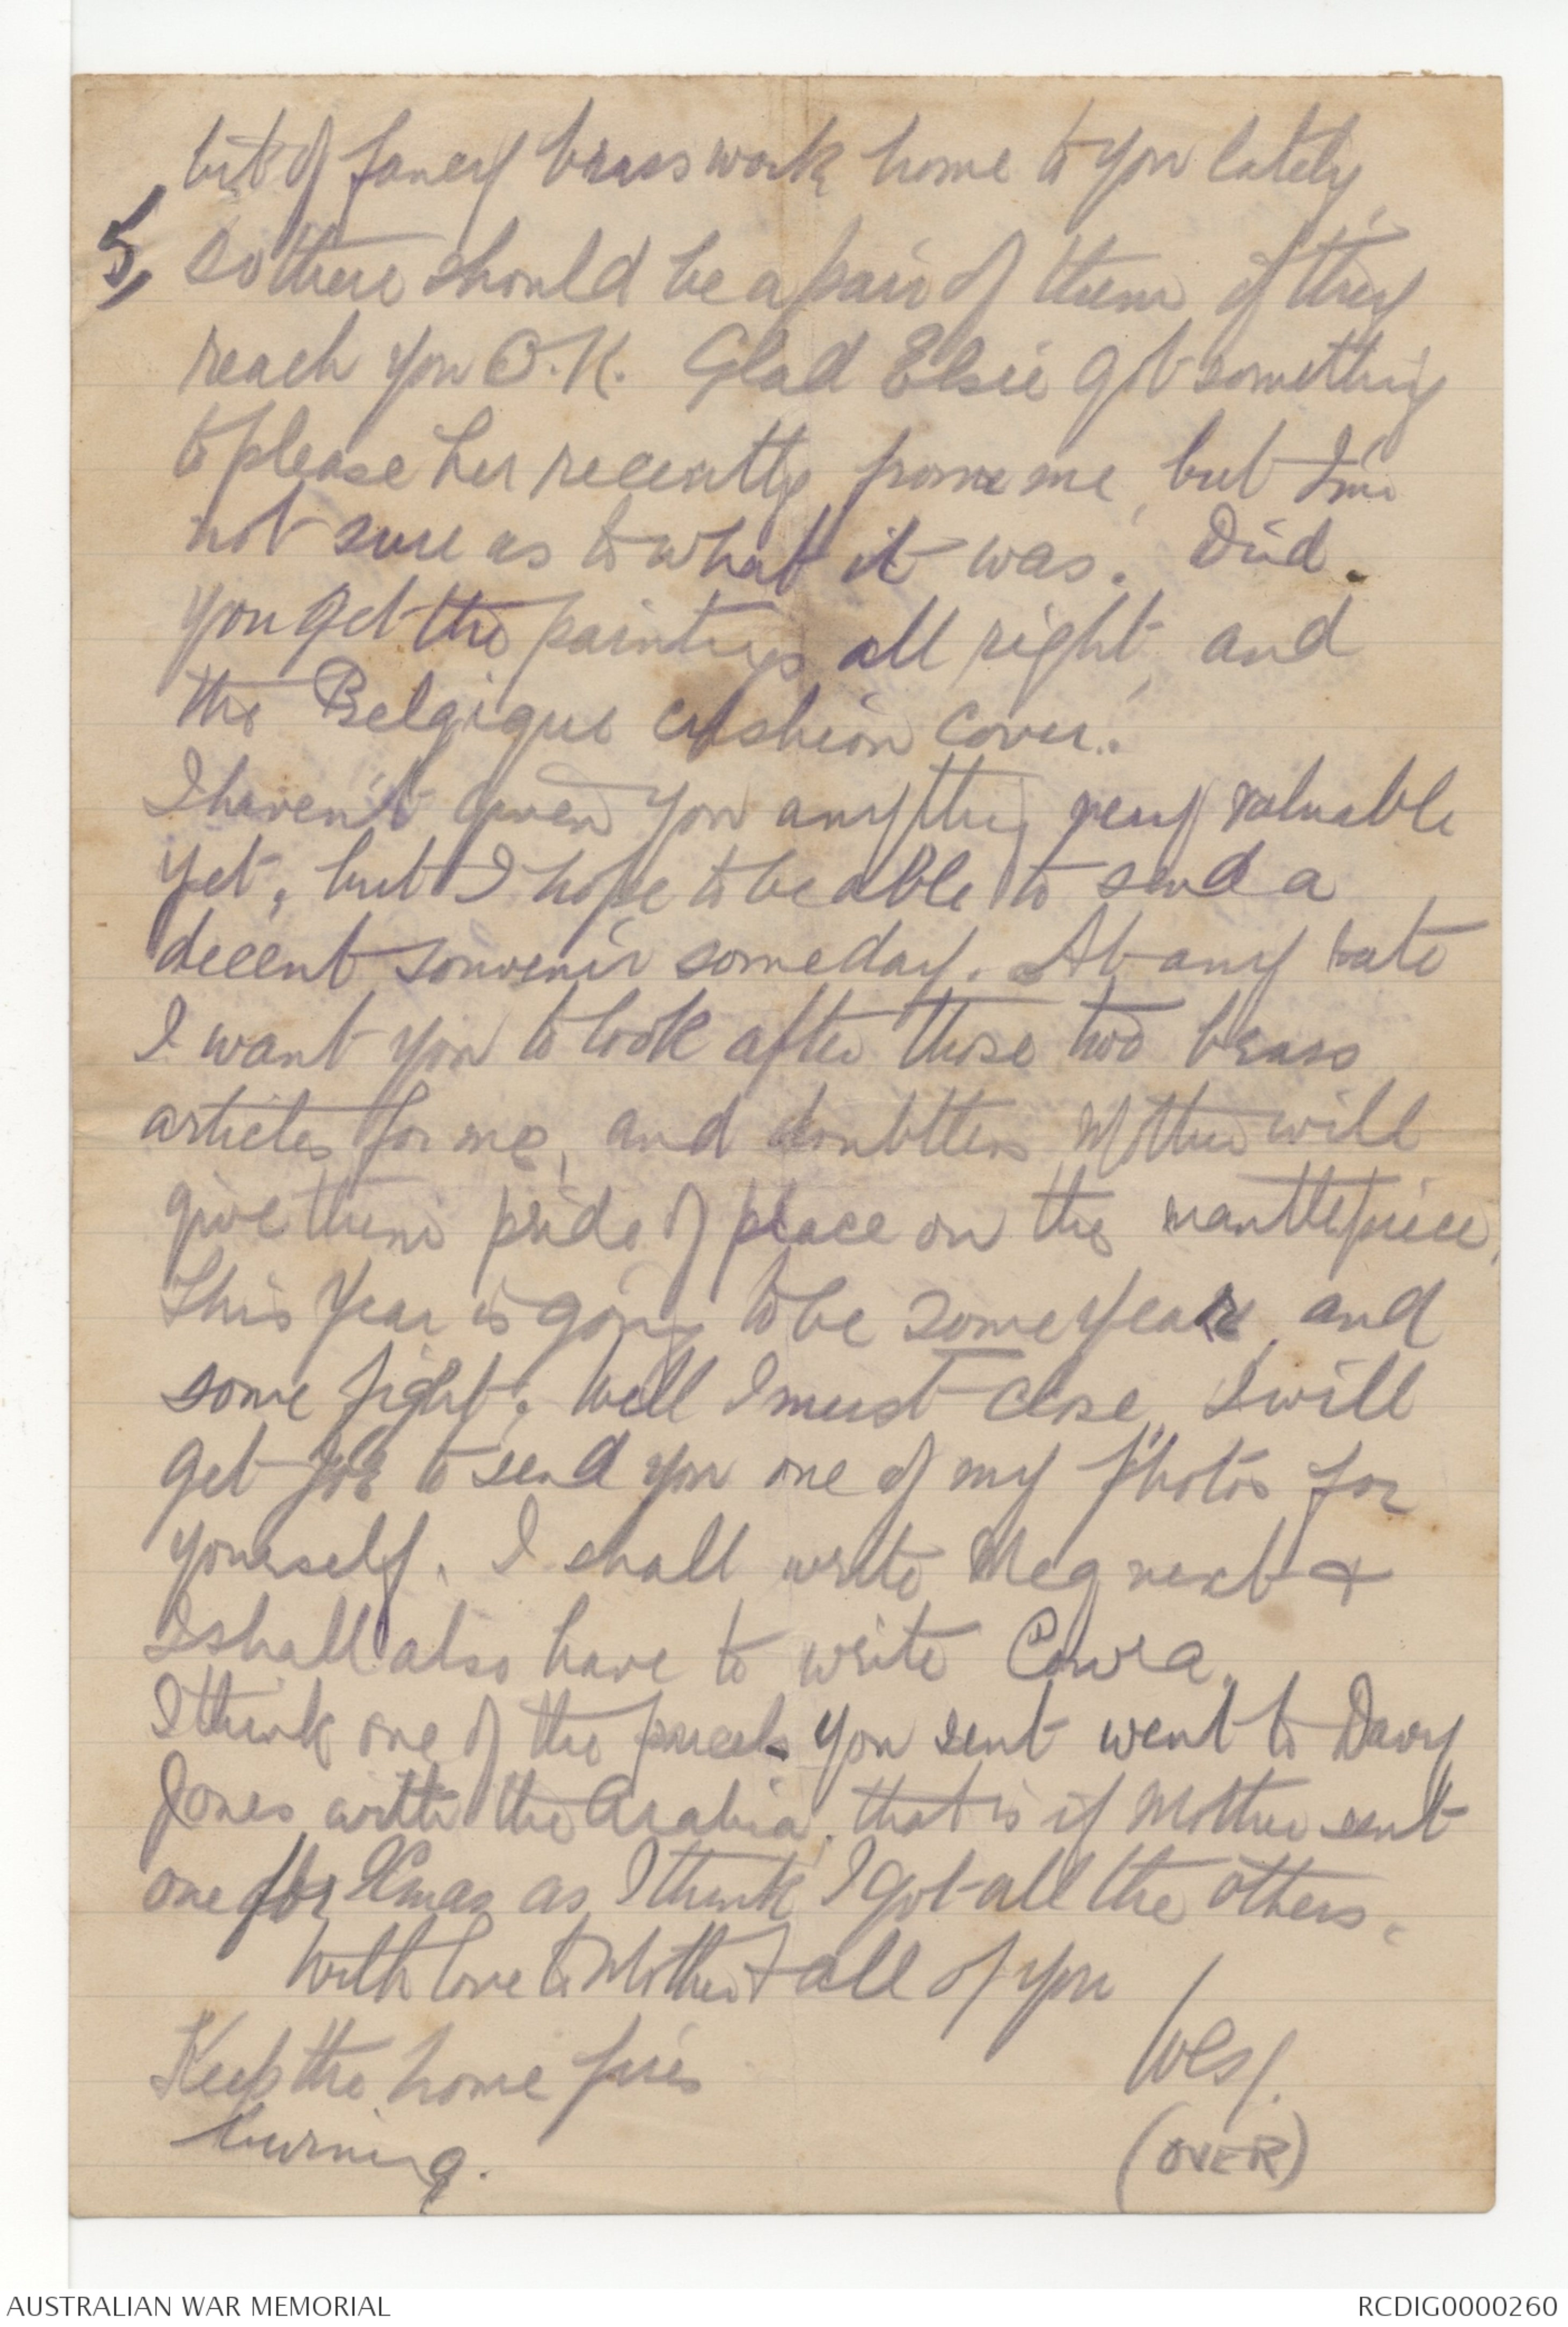 bit of fancy brass work home to you lately,
5, so there should be a pair of them if they
reach you O.K. Glad Elsie got something
to please her recently from me, but I'm
not sure as to what it was. Did
you get the paintings all right, and
the Belgique cushion cover.
I haven't given you anything very valuable
yet, but I hope to be able to send a
decent souvenir someday. At any rate
I want you to look after those two brass
articles for me, and doubtless Mother will
give them pride of place on the mantlepiece.
This year is going to be some year, and
some fight. Well I must close, I will
get to send you one of my photos for
yourself. I shall write Meg next &
I shall also have to write Cowra.
I think one of the parcels you sent went to Davy
Jones with the Arabia, that is if Mother sent
one for Xmas as I think I got all the others.
With love to Mother & all of you
Wesf.
Keep the home fires
burning.
(OVER)
AUSTRALIAN WAR MEMORIAL
RCDIG0000260